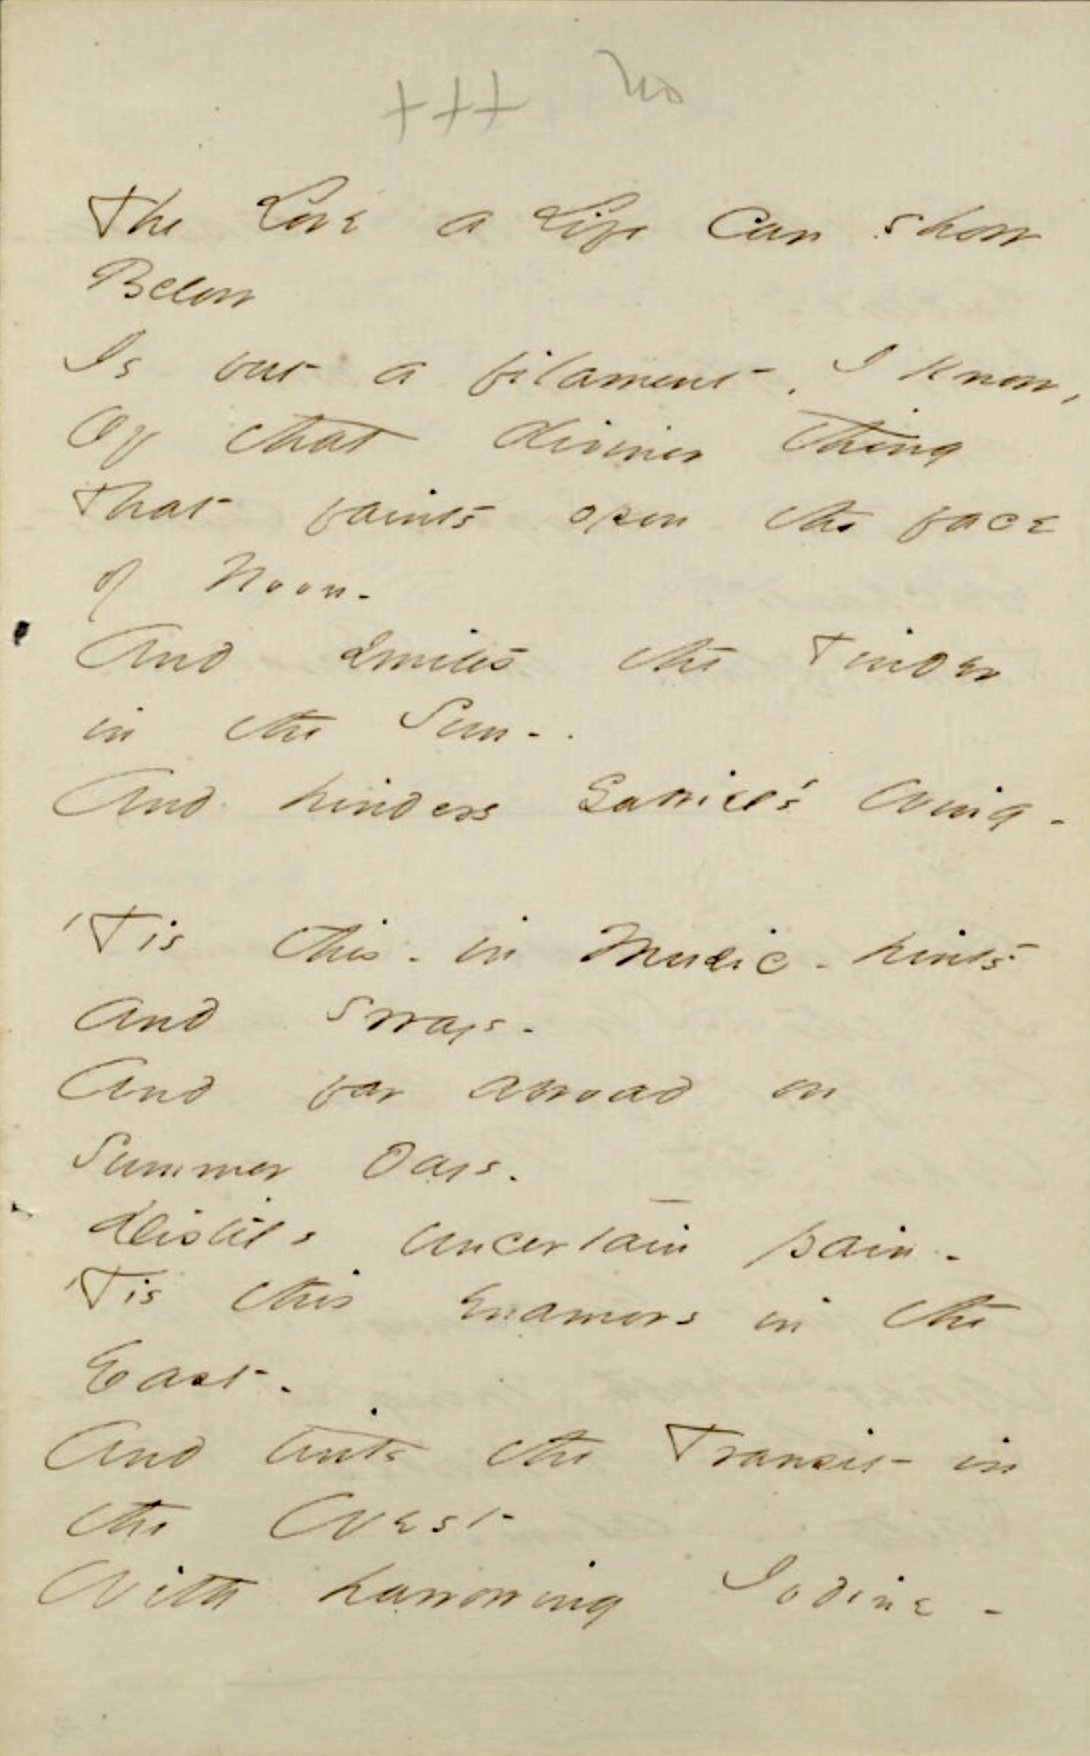 +++ no
The Love a Life Can show
Below
Is but a filament, I know,
Of that diviner thing
That faints opon the face
of Noon -
And smites the Tinder
in the Sun -
And hinders Gabriel's Wing -
'Tis this - in Music - hints
and sways -
And far abroad on
Summer days -
Distils uncertain pain -
'Tis this enamors in the
East -
And tints the Transit in
the West
With harrowing Iodine -